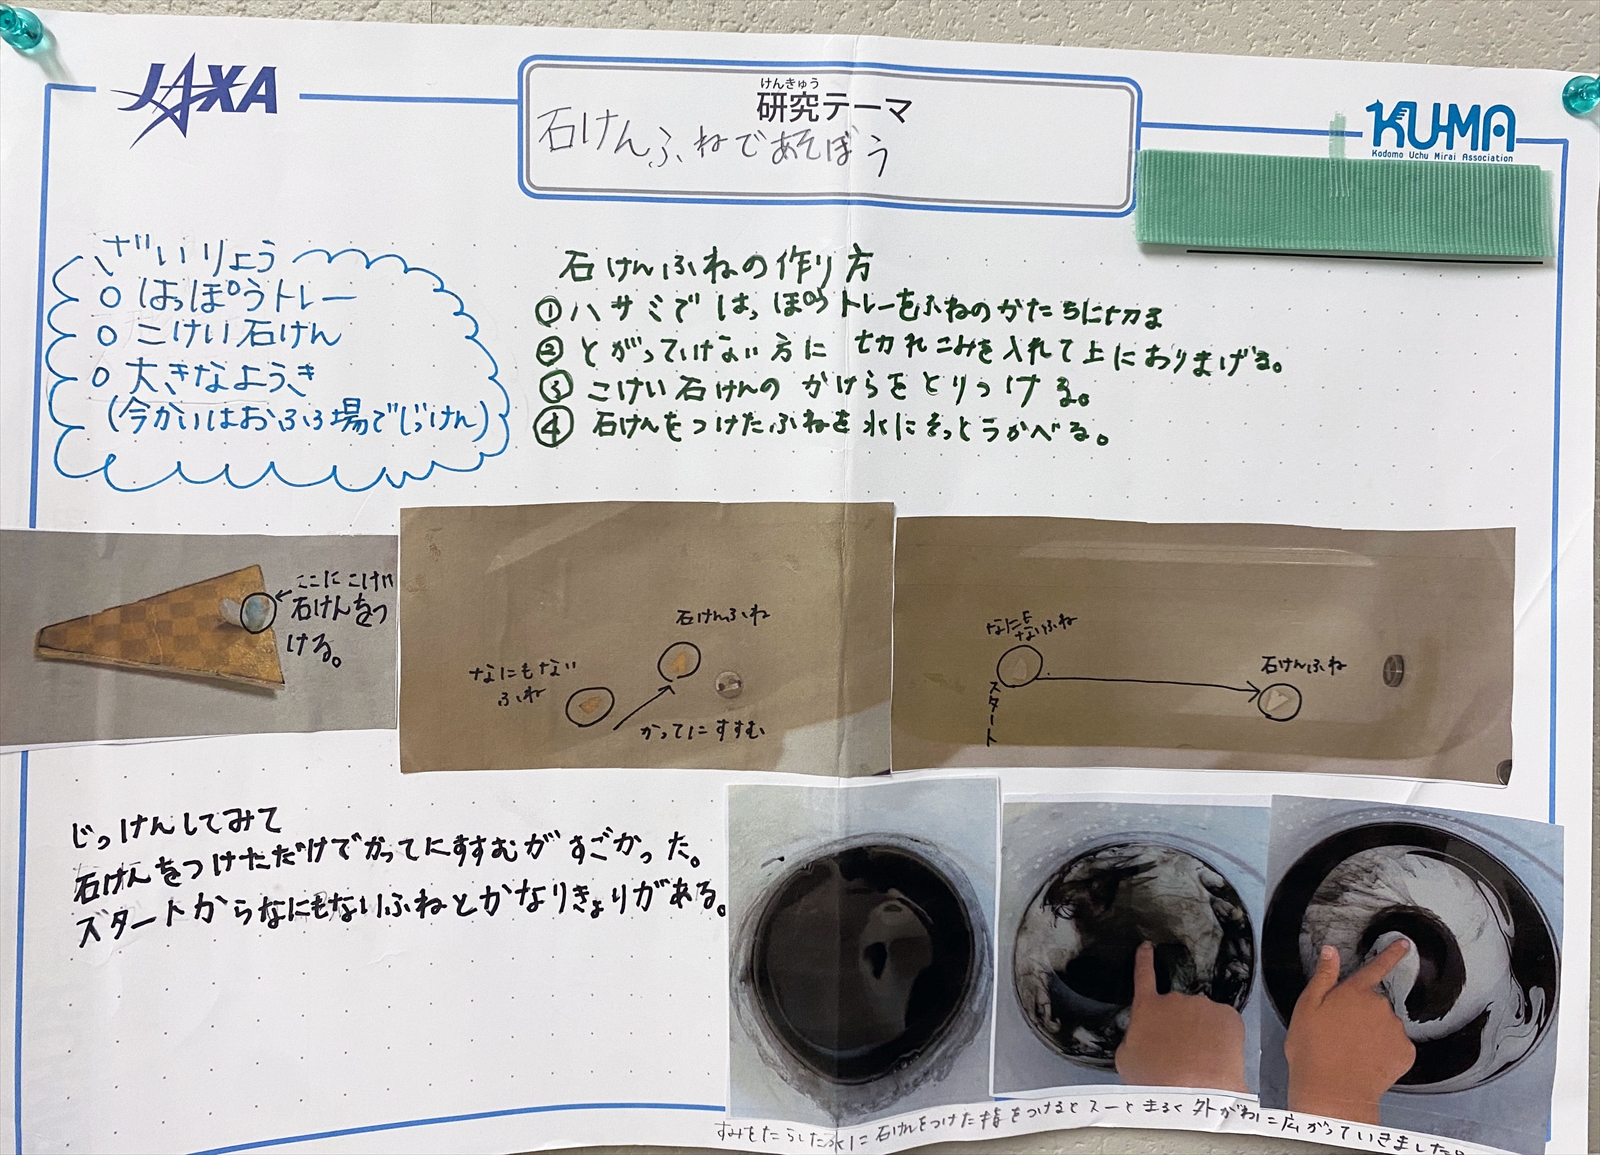 JAXA
けんきゅう
研究テーマ
石けんふねであそぼう
KU-MA
Kodomo Uchu Mirai Association
ざいりょう
○ はっぽうトレー
○ こけい石けん
○ 大きなようき
(今かいはおふろ場でじっけん)
石けんふねの作り方
① ハサミではっぽうトレーをふねのかたちに切る
② とがっていけない方に 切れこみを入れて上におりまげる。
③ こけい石けんの かけらをとりつける。
④ 石けんをつけたふねを水にそっとうかべる。
ここにこけい
石けんをつ
ける。
石けんふね
なにもない
ふね
かってにすすむ
なにも
ないふね
スタート
石けんふね
じっけんしてみて
石けんをつけただけでかってにすすむがすごかった。
スタートからなにもないふねとかなりきょりがある。
すみをたらした水に石けんをつけた指をつけるとスーとまるく外がわに広がっていきました。